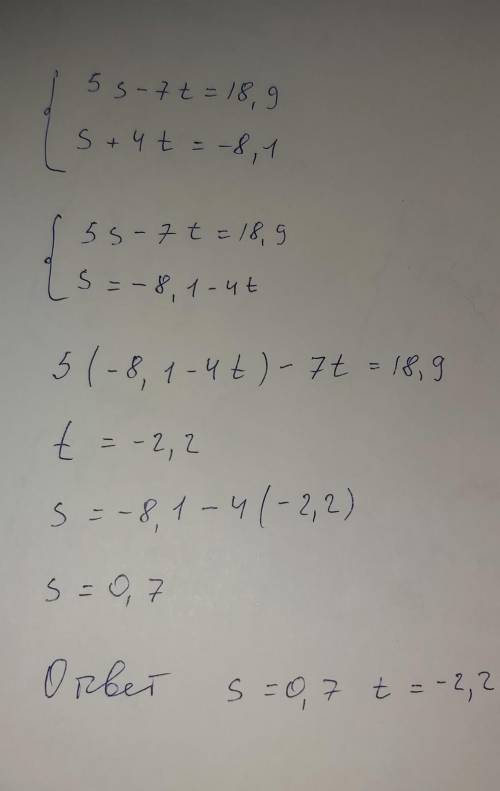 5s-7t=18,9
s+4t=-8,1
5s-7t=18,9
s=-8,1-4t
5(-8,1-4t)-7t=18,9
t=-2,2
s=-8,1-4(-2,2)
s=0,7
Ответ s=0,7 t=-2,2